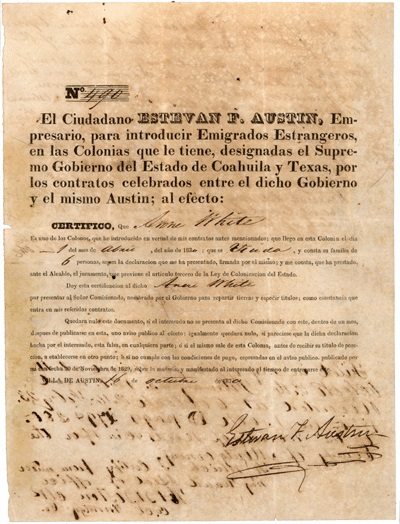 No. 490
El Ciudadano ESTEVAN F. AUSTIN, Em-
presario, para introducir Emigrados Estrangeros,
en las Colonias que le tiene, designadas el Supre-
mo Gobierno del Estado de Coahuila y Texas, por
los contratos celebrados entre el dicho Gobierno
y el mismo Austin; al efecto:
CERTIFICO, Que Anne White
Es uno de los Colonos, que he introducido en virtud de mis contratos antes mencionados; que llegó en esta Colonia el dia
del mes de Abril, del año de 183 que es Viuda, y consta su familia de
6 personas, segun la declaracion que me ha presentado, firmada por él mismo; y me consta, que ha prestado,
ante el Alcalde, el juramento, que previene el artículo tercero de la Ley de Colonizacion del Estado.
Doy esta certificacion al dicho Anne White
por presentar al Señor Comisionado, nombrado por el Gobierno para repartir tierras y espedir titulos; como constancia que
entra en mis referidos contratos.
Quedará nulo este documento, si el interesado no se presenta al dicho Comisionado con este, dentro de un mes,
despues de publicarse en esta, una aviso publico al efecto: igualmente quedará nulo, si pareciese que la dicha declaracion
hecha por el interesado, esta falsa, en cualquiera parte; ó si el mismo sale de esta Colonia, antes de recibir su titulo de posse-
sion, a establecerse en otro punto; ó si no cumple con las condiciones de pago, espresadas en el aviso publico, publicado por
mi con fecha 20 de Noviembre de 1829, sobre la materia, y manifestado al interesado al tiempo de entregarse
VILLA DE AUSTIN, 16 de octubre
Estevan F. Austin